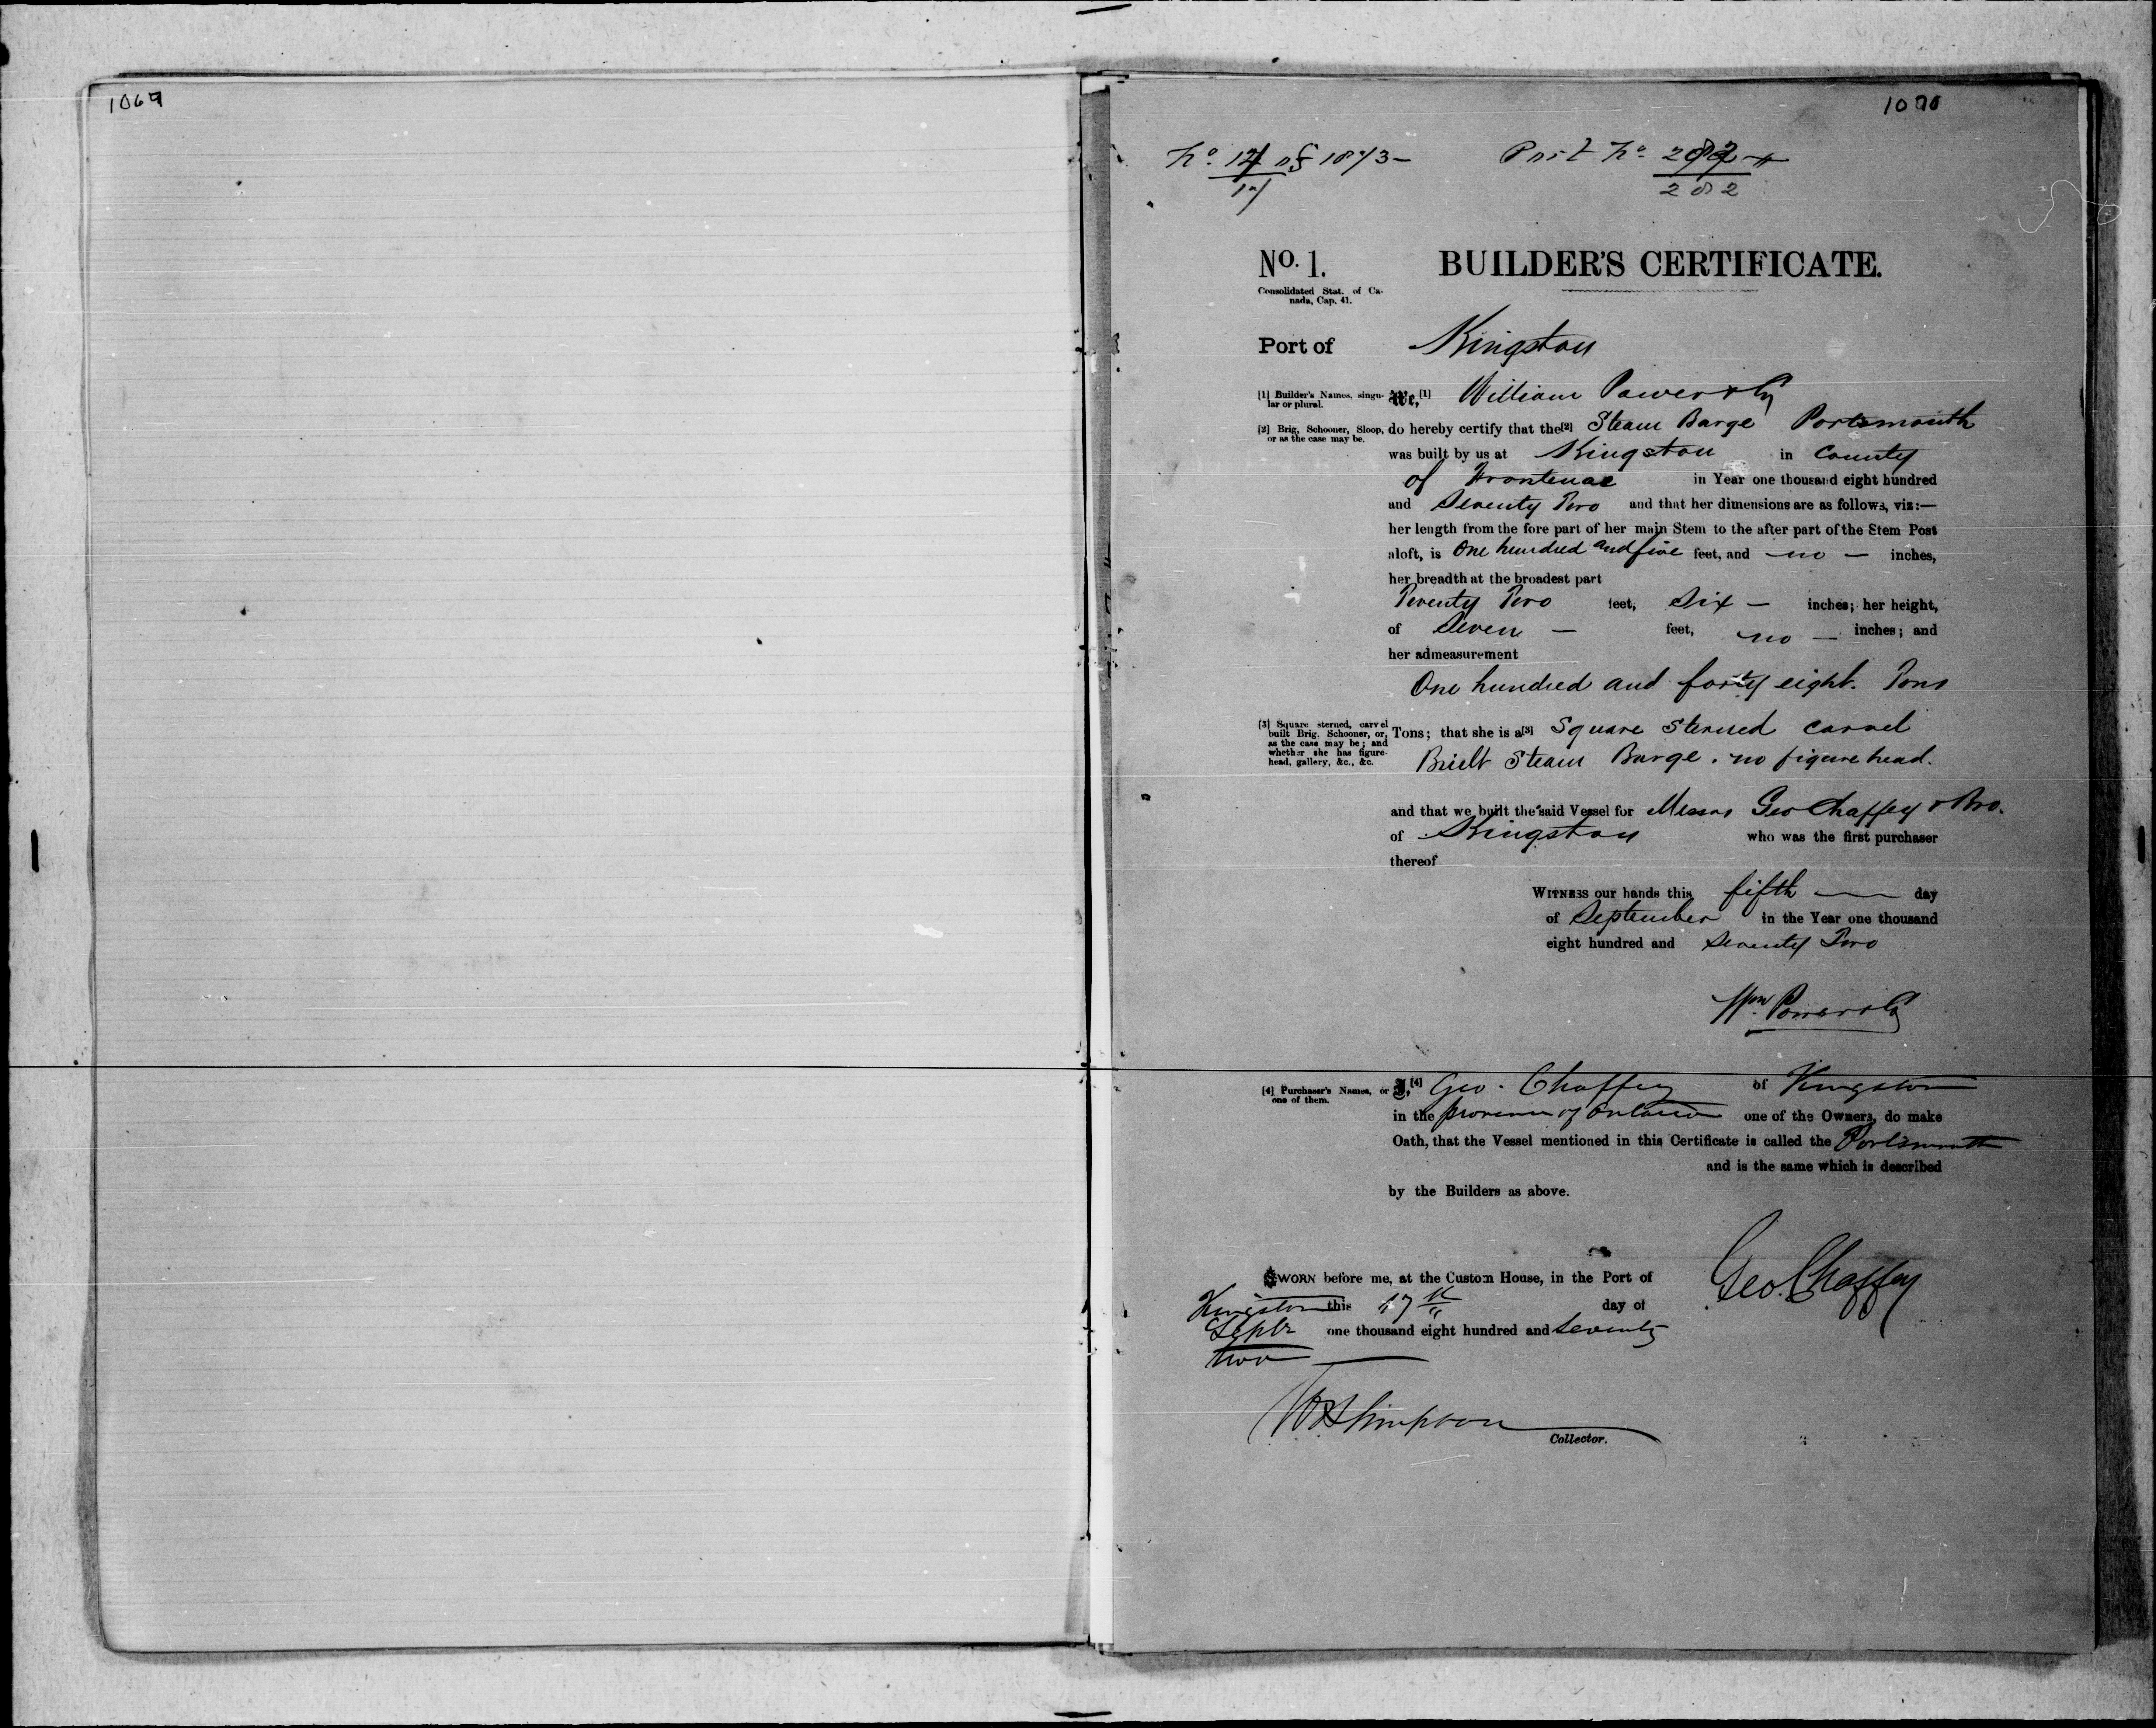 1069
1070
No. 14 of 1873 –
17
Port No. 282
282
No. 1.
BUILDER'S CERTIFICATE.
Consolidated Stat. of Ca-
nada, Cap. 41.
Port of Kingston
[1] Builder's Names, singu-
lar or plural.
We,[1] William Power & Co
[2] Brig, Schooner, Sloop,
or as the case may be.
do hereby certify that the[2] Steam Barge Portsmouth
was built by us at Kingston in County
of Frontenac in Year one thousand eight hundred
and Seventy Two and that her dimensions are as follows, viz:—
her length from the fore part of her main Stem to the after part of the Stem Post
aloft, is One hundred and five feet, and – no – inches,
her breadth at the broadest part
Twenty Two feet, Six – inches; her height,
of Seven – feet, no – inches; and
her admeasurement
One hundred and forty eight. Tons
[3] Square sterned, carvel
built Brig. Schooner, or,
as the case may be; and
whether she has figure-
head, gallery, &c., &c.
Tons; that she is a[3] Square Sterned carvel
Built Steam Barge. no figure head.
and that we built the said Vessel for Messrs Geo Chaffey & Bro.
of Kingston who was the first purchaser
thereof
WITNESS our hands this fifth — day
of September in the Year one thousand
eight hundred and Seventy Two
Wm. Power & Co
[4] Purchaser's Names, or
one of them.
I,[4] Geo. Chaffey of Kingston
in the province of Ontario one of the Owners, do make
Oath, that the Vessel mentioned in this Certificate is called the Portsmouth
and is the same which is described
by the Builders as above.
SWORN before me, at the Custom House, in the Port of
Kingston this 17th day of
Septr one thousand eight hundred and seventy
two —
Geo. Chaffey
W R Simpson
Collector.